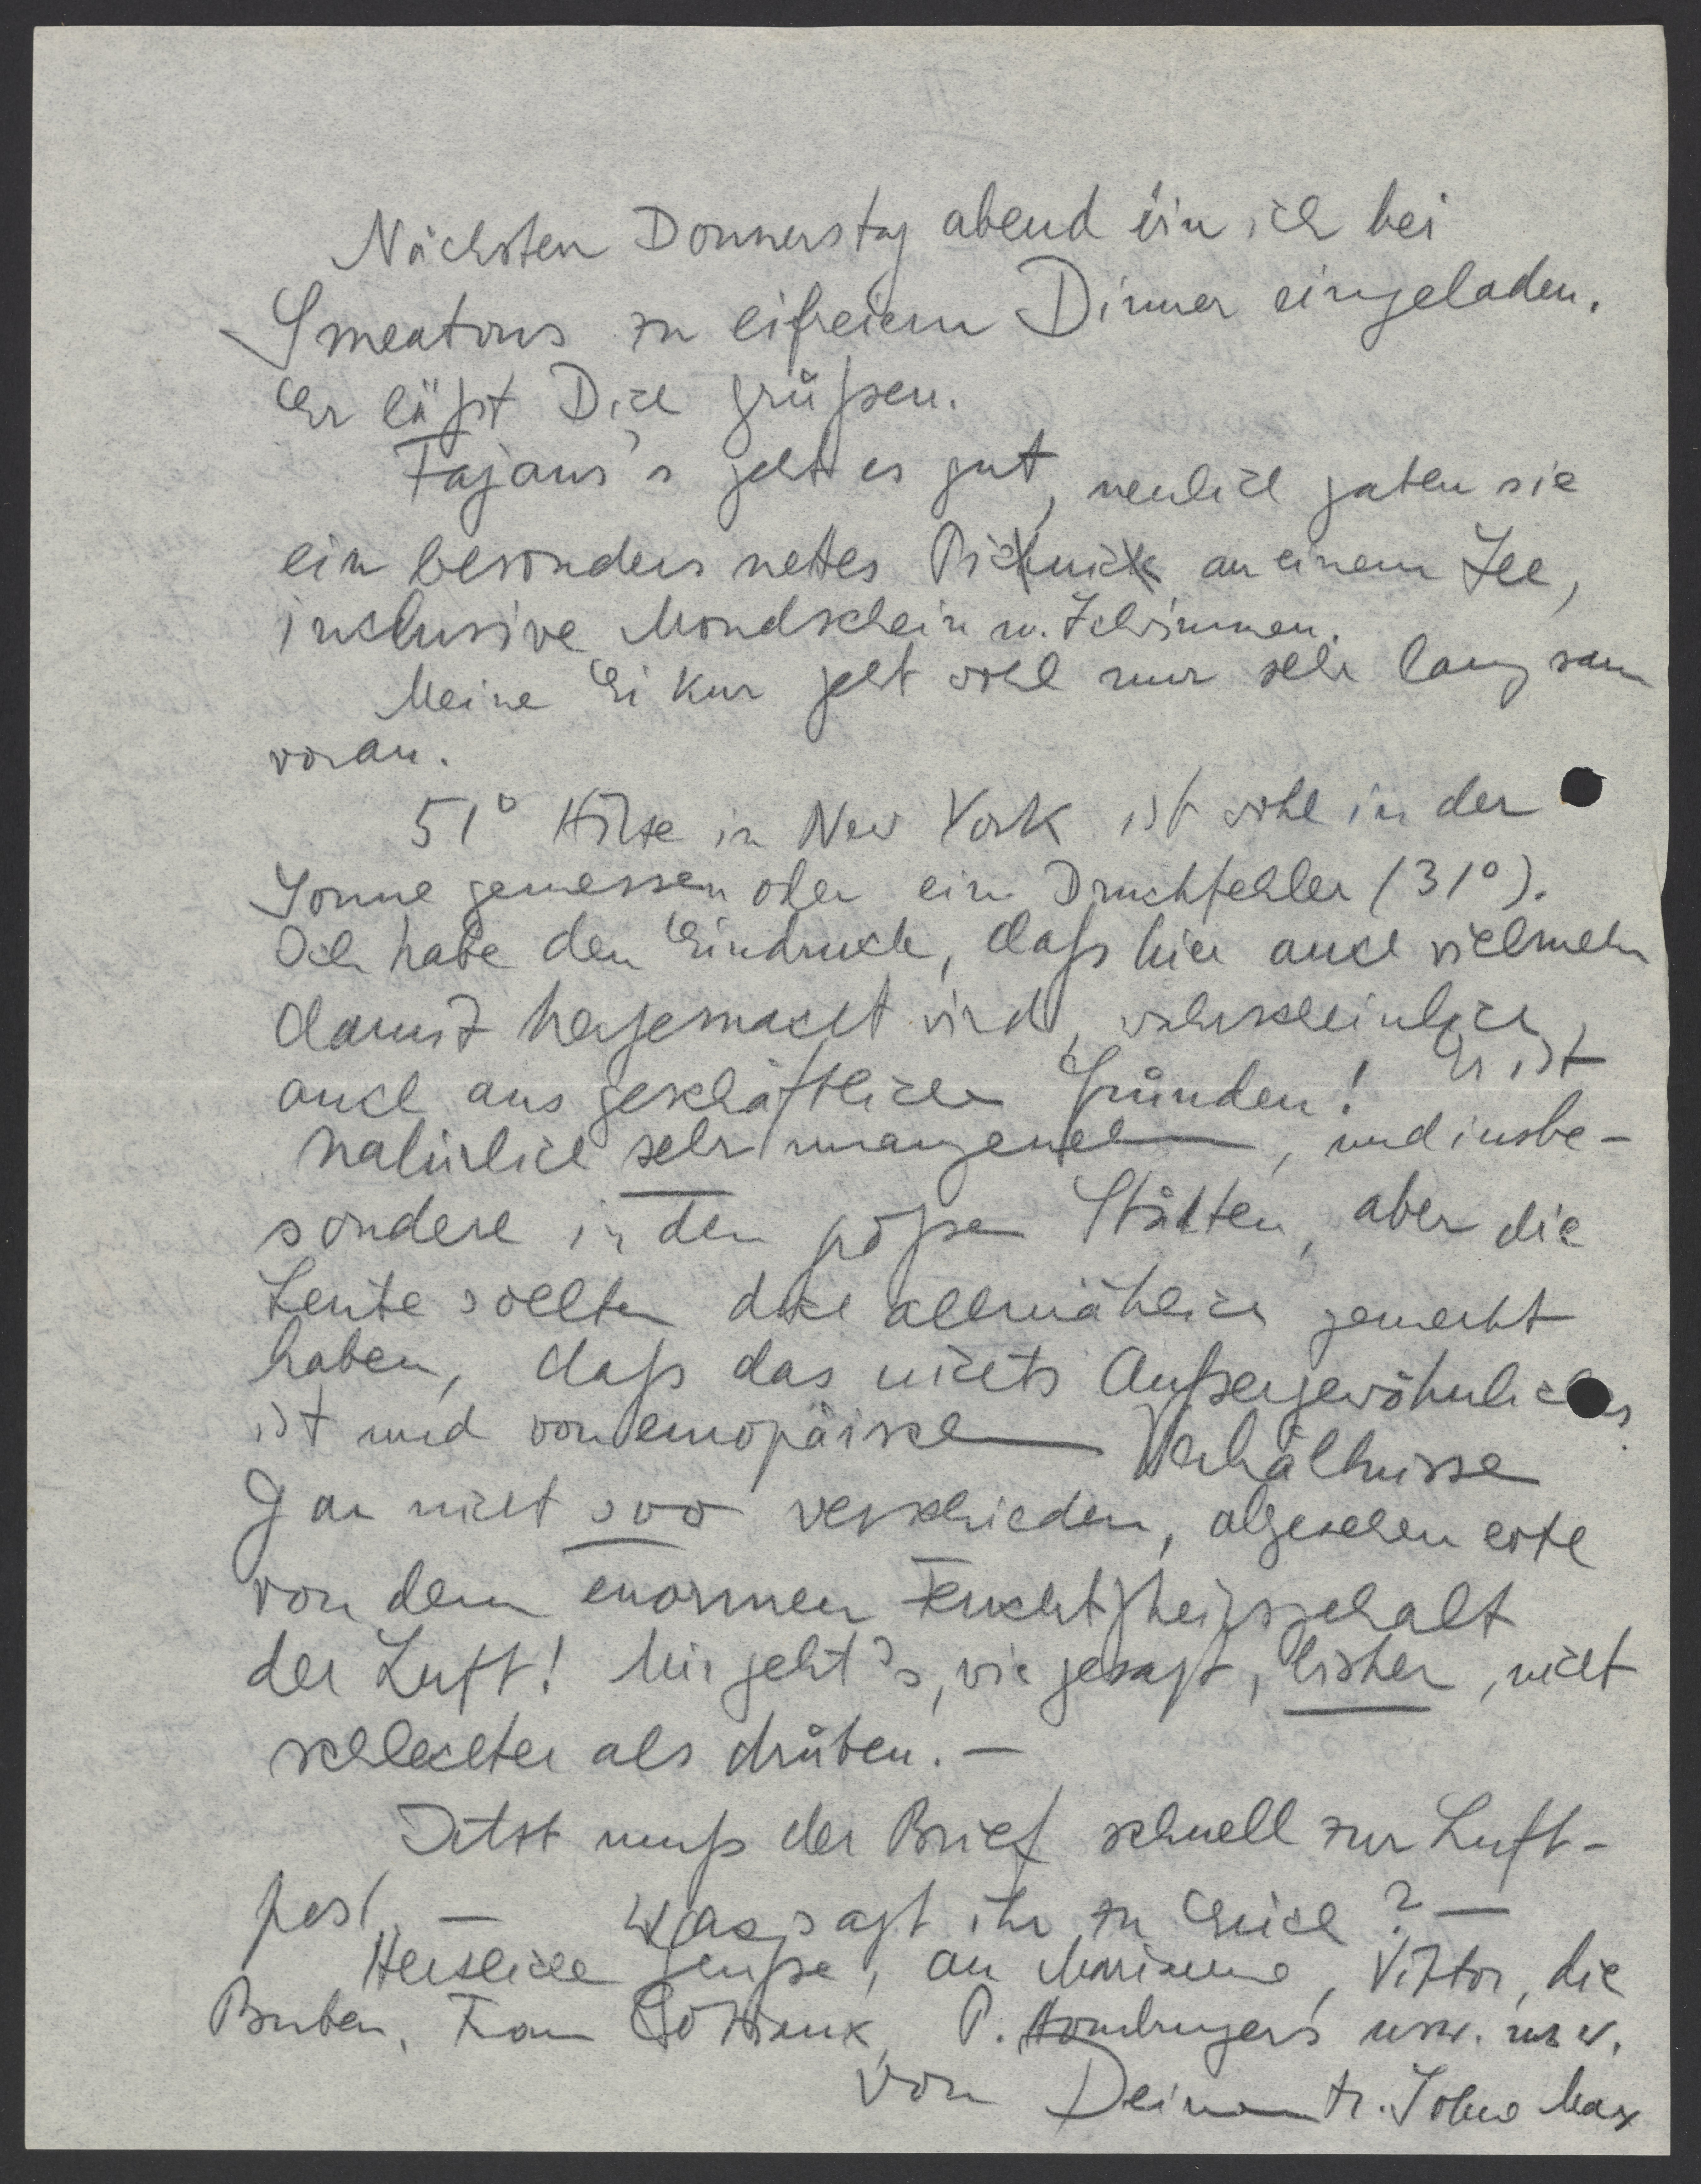 Nächsten Donnerstag abend bin ich bei
Smeatons zu eifreiem Dinner eingeladen.
Er läßt Dich grüßen.
Fajans's geht es gut, neulich gaben sie
ein besonders nettes Picknick an einem See,
inklusive Mondschein u. Schwimmen.
Meine Ei Kur geht wohl nur sehr langsam
voran.
51° Hitze in New York ist wohl in der
Sonne gemessen oder ein Druckfehler (31°).
Ich habe den Eindruck, daß hier auch vielmehr
damit hergemacht wird, wahrscheinlich,
auch aus geschäftlichen Gründen! Es ist
natürlich sehr unangenehm, und insbe-
sondere in den großen Städten, aber die
Leute sollten doch allmählich gemerkt
haben, daß das nichts Außergewöhnliches
ist und von europäischen Verhältnissen
gar nicht soo verschieden, abgesehen evtl
von dem enormen Feuchtigkeitsgehalt
der Luft! Mir geht's, wie gesagt, bisher, nicht
schlechter als drüben. —
Jetzt muß der Brief schnell zur Luft-
post. — Was sagt ihr zu Erich? —
Herzliche Grüße, an Marianne, Viktor, die
Buben, Frau P. Homburgers usw. usw.
von Deinem tr. Sohne Max